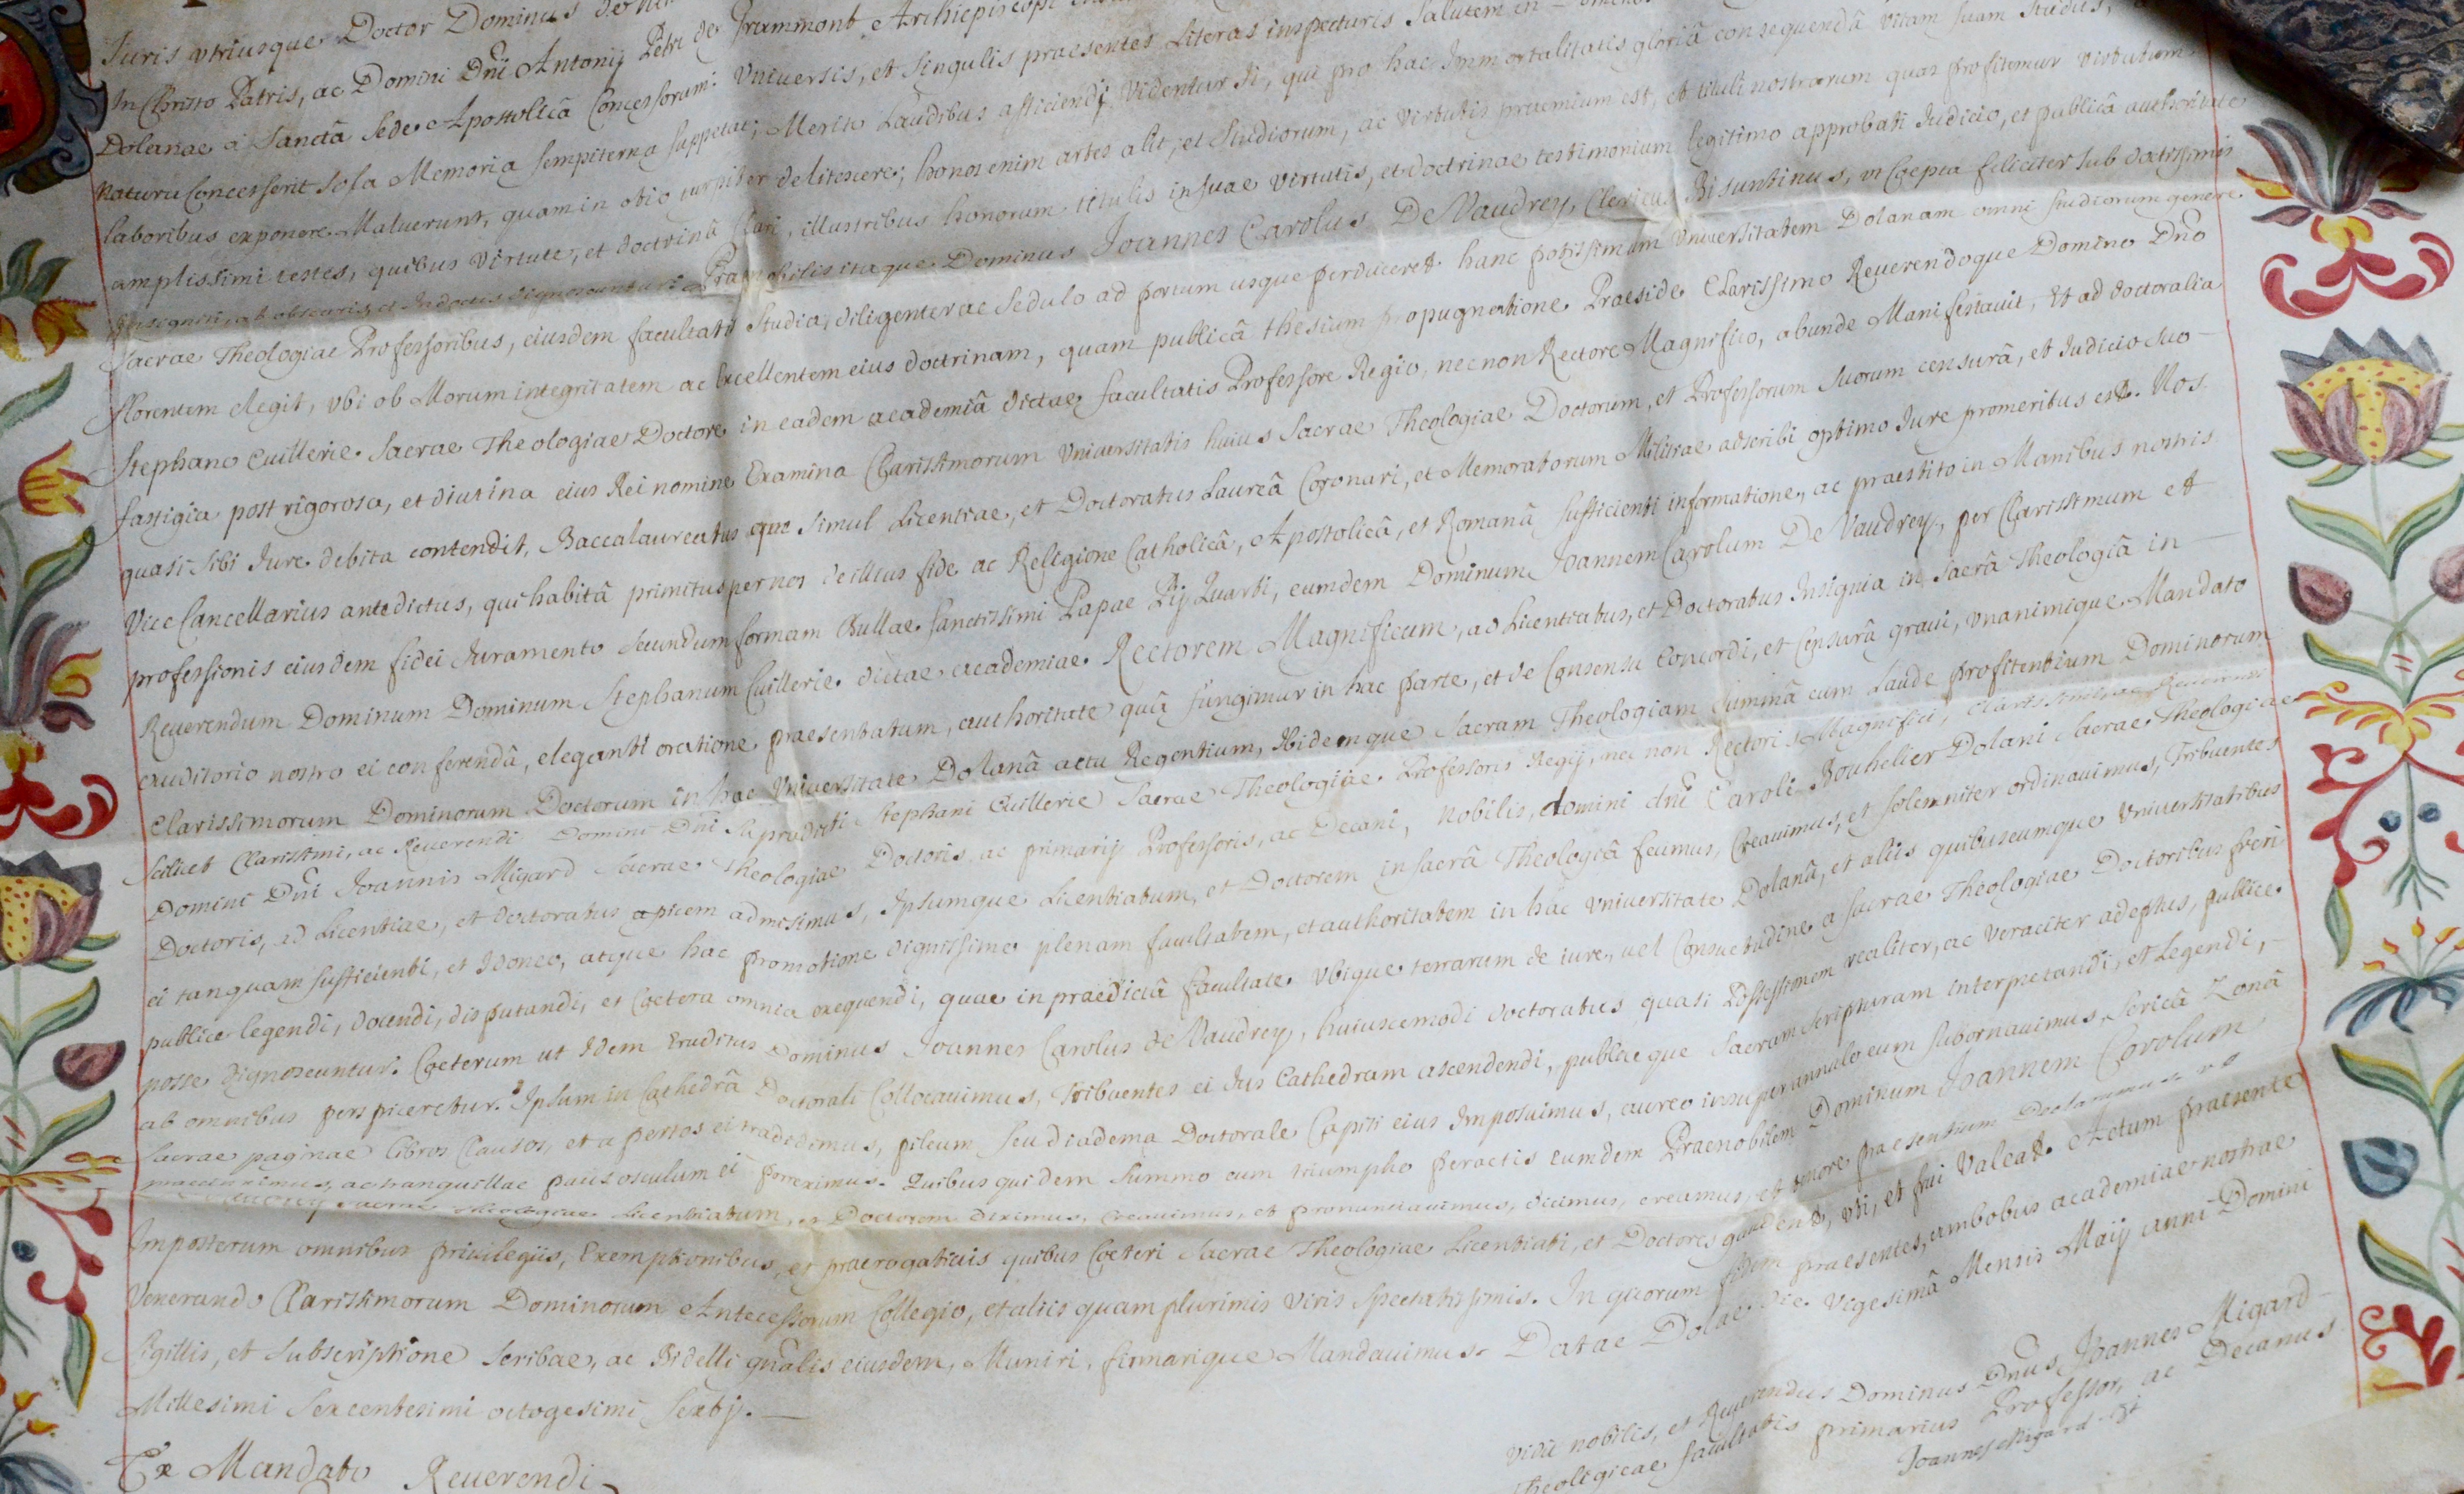 Iuris vtriusque Doctor Dominus
In Christo Patris, ac Domini Dni Antonij Petri de Grammont Archiepiscopi
Dolanae a Sanctâ Sede Apostolicâ Concessorum. Vniuersis, et singulis praesentes Literas inspecturis Salutem in
natura Concesserit sola Memoria sempiterna suppetat; Merito Laudibus afficiendi videntur ij, qui pro hac Immortalitatis gloriâ consequendâ vitam suam studijs,
laboribus exponere Maluerunt, quam in otio turpiter delitescere; honos enim artes alit, et Studiorum, ac virtutis praemium est, et tituli nostrarum quas profitemur virtutum
amplissimi testes, quibus virtute, et doctrinâ Clari, illustribus honorum titulis in suae virtutis, et doctrinae testimonium legitimo approbati Iudicio, et publicâ authoritate
Insigniti, ab obscuris et Indoctis dignoscuntur. Praenobilis itaque Dominus Ioannes Carolus De Vaudrey, Clericus Bisuntinus, vt Coepta feliciter sub doctissimis
Sacrae Theologiae Professoribus, eiusdem facultatis Studia, diligenter ac Sedulo ad portum usque perduceret hanc potissimum Vniuersitatem Dolanam omni studiorum genere
florentem elegit, vbi ob Morum integritatem ac Excellentem eius doctrinam, quam publicâ thesium propugnatione Praeside Clarissimo Reuerendoque Domino Dno
Stephano Cuillerie Sacrae Theologiae Doctore in eadem academiâ dictae facultatis Professore Regio, nec non Rectore Magnifico, abunde Manifestauit, Et ad doctoralia
fastigia post rigorosa, et diutina eius Rei nomine Examina Clarissimorum Vniuersitatis huius Sacrae Theologiae Doctorum, et Professorum Suorum censurâ, et Iudicio suo
quasi sibi Iure debita contendit, Baccalaureatus que simul Licentiae, et Doctoratus Laureâ Coronari, et Memoratorum Militiae adscribi optimo Iure promeritus est. Nos
Vice Cancellarius antedictus, qui habitâ primitus per nos de illius fide ac Religione Catholicâ, Apostolicâ, et Romanâ sufficienti informatione, ac praestito in Manibus nostris
professionis eiusdem fidei Iuramento secundum formam Bullae Sanctissimi Papae Pij Quarti, eumdem Dominum Ioannem Carolum De Vaudrey, per Clarissimum et
Reuerendum Dominum Dominum Stephanum Cuillerie dictae academiae Rectorem Magnificum, ad Licentiatus, et Doctoratus Insignia in Sacrâ Theologiâ in
auditorio nostro ei conferendâ, eleganti oratione praesentatum, authoritate quâ fungimur in hac parte, et de Consensu Concordi, et Censurâ graui, vnanimique Mandato
Clarissimorum Dominorum Doctorum in hac Vniuersitate Dolanâ actu Regentium, Ibidemque Sacram Theologiam summâ cum Laude profitentium Dominorum
Scilicet Clarissimi, ac Reuerendi Domini Dni Supradicti Stephani Cuillerie Sacrae Theologiae Professoris Regij, nec non Rectoris Magnifici, Clarissimi, ac Reuerendi
Domini Dni Ioannis Migard Sacrae Theologiae Doctoris, ac primarij Professoris, ac Decani, Nobilis, domini dni Caroli Bouhelier Dolani Sacrae Theologiae
Doctoris, ad Licentiae, et doctoratus apicem admisimus, Ipsumque Licentiatum, et Doctorem in Sacrâ Theologiâ fecimus, Creauimus, et solemniter ordinauimus, Tribuentes
ei tanquam sufficienti, et Idoneo, atque hac promotione dignissimo plenam facultatem, et authoritatem in hâc Vniuersitate Dolanâ, et aliis quibuscumque Vniuersitatibus
publice legendi, docendi, disputandi, et Coetera omnia exequendi, quae in praedictâ facultate vbique terrarum de iure, uel Consuetudine a sacrae Theologiae Doctoribus fieri
posse dignoscuntur. Coeterum ut Idem Eruditus Dominus Ioannes Carolus de Vaudrey, huiuscemodi doctoratus quasi Possessionem realiter, ac veraciter adeptus, publice
ab omnibus perspiceretur. Ipsum in Cathedrâ Doctorali Collocauimus, Tribuentes ei Ius Cathedram ascendendi, publiceque Sacram Scripturam interpretandi, et Legendi,
Sacrae paginae Libros Clausos, et apertos ei tradidimus, pileum seu diadema Doctorale Capiti eius Imposuimus, aureo insuper annulo eum subornauimus, sericâ Zonâ
praecinximus, ac tranquillae pacis osculum ei porreximus. Quibus quidem summo cum triumpho peractis eumdem Praenobilem Dominum Ioannem Carolum
Sacrae Theologiae Licentiatum, et Doctorem diximus, Creauimus, et pronuntiauimus, dicimus, creamus, et tenore praesentium Declaramus vt
Imposterum omnibus priuilegiis, Exemptionibus, et praerogatiuis quibus Coeteri Sacrae Theologiae Licentiati, et Doctores gaudent, vti, et frui Valeat. Actum praesente
Venerando Clarissimorum Dominorum Antecessorum Collegio, et aliis quam plurimis viris spectatissimis. In quorum fidem praesentes, ambobus academiae nostrae
Sigillis, et subscriptione Scribae, ac Bidelli gnâlis eiusdem, Muniri, firmarique Mandauimus. Datae Dolae die vigesimâ Mensis Maij anni Domini
Millesimi Sexcentesimi octogesimi Sexti.
Ex Mandato Reuerendi
Vidit nobilis, et Reuerendus Dominus Dnus Ioannes Migard
Theologicae facultatis primarius Professor, ac Decanus
Ioannes Migard